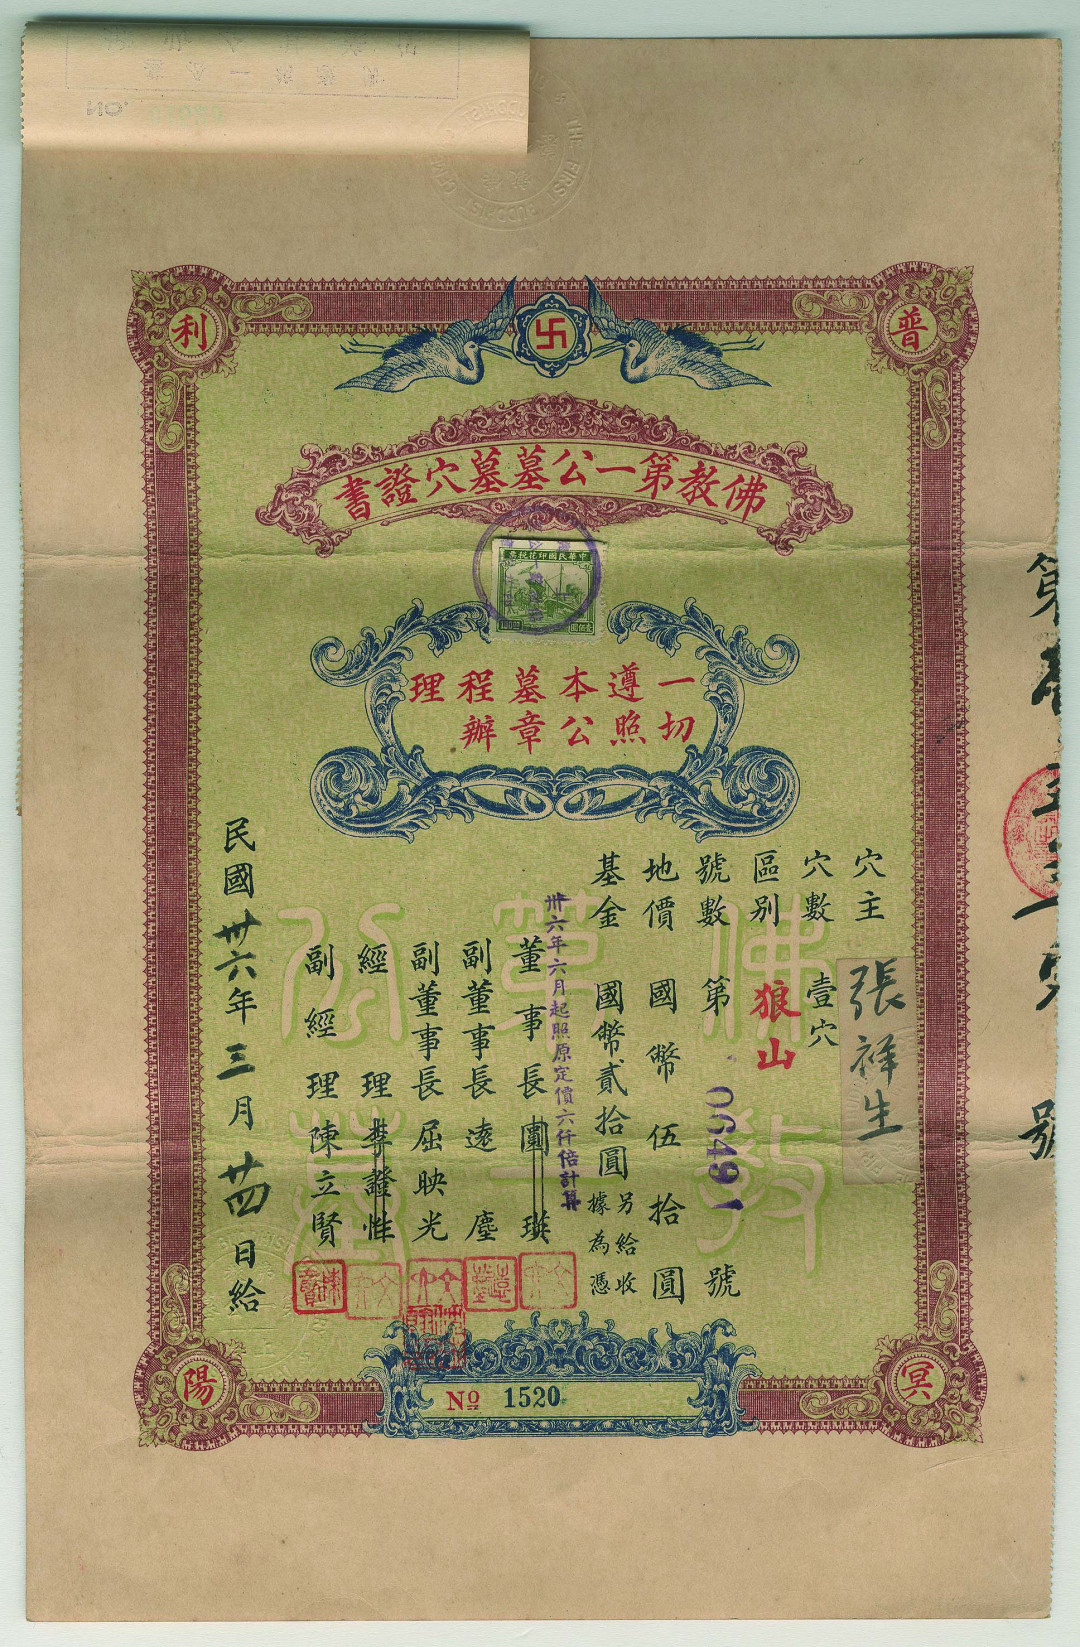 普利冥陽
卍
佛教第一公墓墓穴證書
中華民國印花稅票
一切遵照本公墓章程辦理
穴主 張祥生
穴數 壹穴
區別 狼山
號數 第 06491 號
地價 國幣伍拾圓
基金 國幣貳拾圓 另給收據為憑
卅六年六月起照原定價六仟倍計算
董事長 圓瑛
副董事長 遠塵
副董事長 屈映光
經理 李證性
副經理 陳立賢
民國卅六年三月廿四日給
No 1520
THE FIRST BUDDHIST
No.